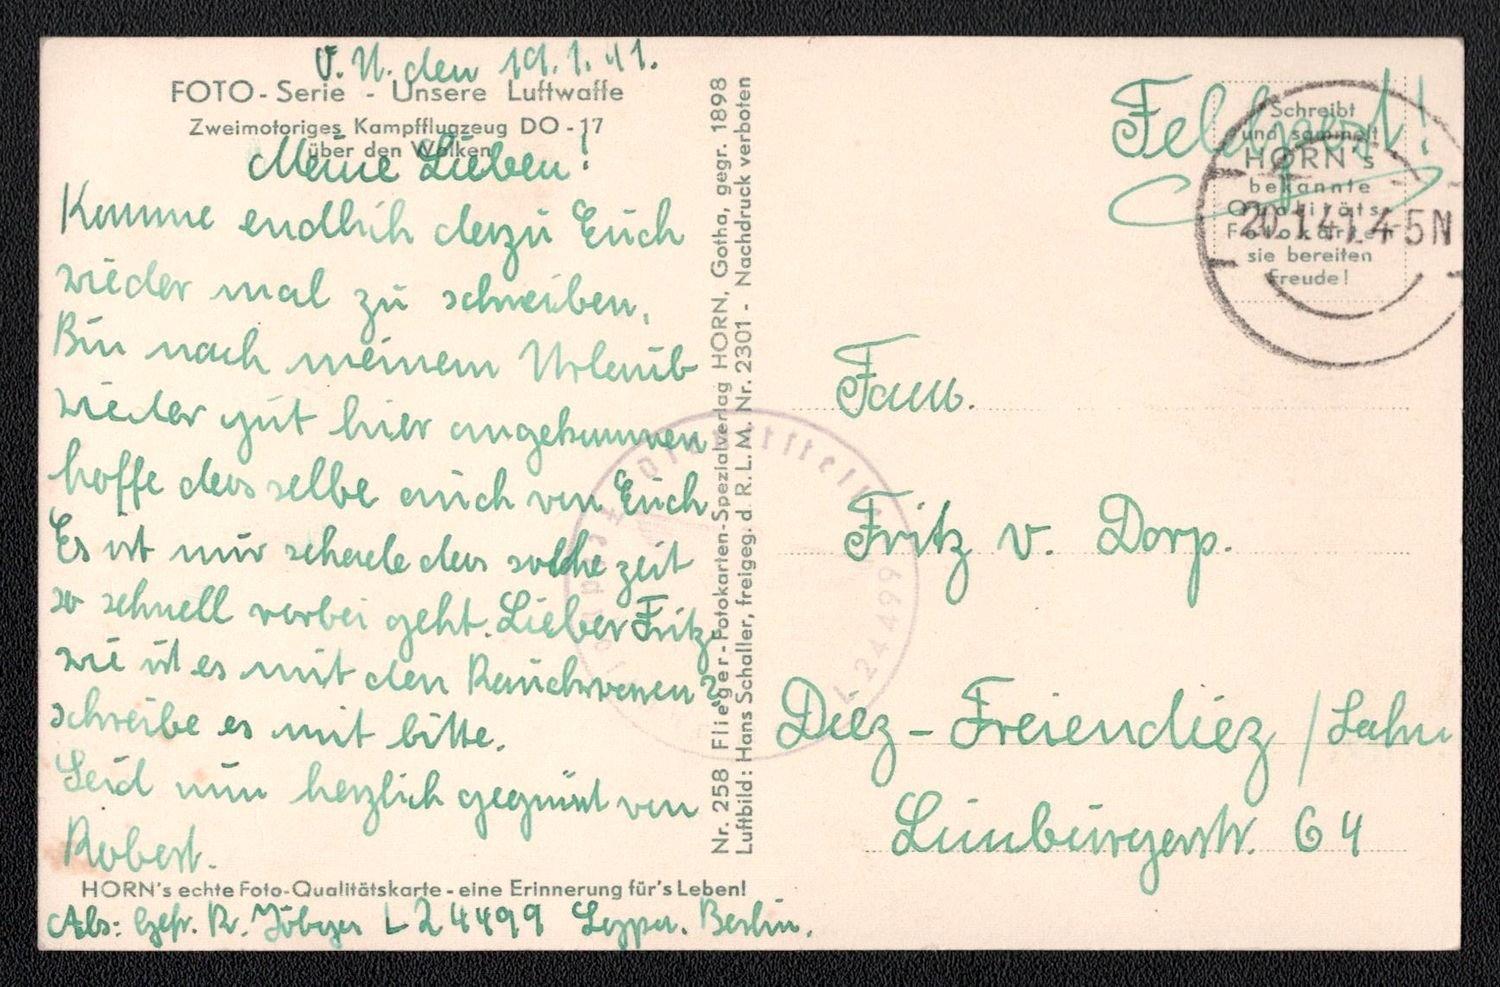 O.U. den 19.1.41.
FOTO - Serie - Unsere Luftwaffe
Zweimotoriges Kampfflugzeug DO - 17
über den Wolken
Meine Lieben!
Komme endlich dazu Euch
wieder mal zu schreiben,
Bin nach meinem Urlaub
wieder gut hier angekommen
hoffe das selbe auch von Euch.
Es ist nur schade das solche zeit
so schnell vorbei geht. Lieber Fritz
wie ist es mit den Rauchwaren?
schreibe es mit bitte.
Seid nun herzlich gegrüsst von
Robert.
HORN's echte Foto-Qualitätskarte - eine Erinnerung für's Leben!
Abs: Gefr. R. L 24499 Berlin.
Nr. 258 Flieger-Fotokarten-Spezialverlag HORN, Gotha, gegr. 1898
Luftbild: Hans Schaller, freigeg. d. R.L.M. Nr. 2301 - Nachdruck verboten
Feldpost!
Schreibt
und sammelt
HORN's
bekannte
Qualitäts-
Fotokarten
sie bereiten
Freude!
20.1.41.4-5N
Fam.
Fritz v. Dorp.
Diez - Freiendiez / Lahn
Limburgerstr. 64
L 24499